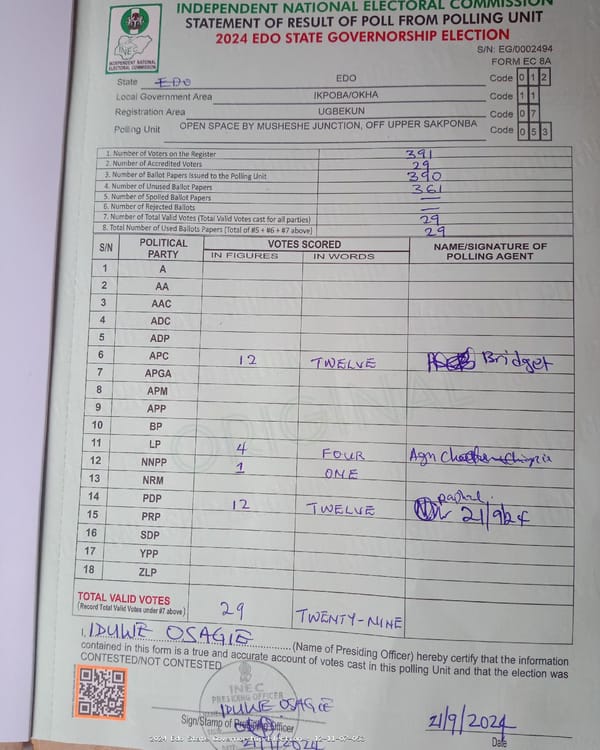 INDEPENDENT NATIONAL ELECTORAL COMMISSION
STATEMENT OF RESULT OF POLL FROM POLLING UNIT
2024 EDO STATE GOVERNORSHIP ELECTION
INEC
INDEPENDENT NATIONAL ELECTORAL COMMISSION
S/N: EG/0002494
FORM EC 8A
State EDO EDO Code 0 1 2
Local Government Area IKPOBA/OKHA Code 1 1
Registration Area UGBEKUN Code 0 7
Polling Unit OPEN SPACE BY MUSHESHE JUNCTION, OFF UPPER SAKPONBA Code 0 5 3
1. Number of Voters on the Register 391
2. Number of Accredited Voters 29
3. Number of Ballot Papers Issued to the Polling Unit 390
4. Number of Unused Ballot Papers 361
5. Number of Spoiled Ballot Papers —
6. Number of Rejected Ballots —
7. Number of Total Valid Votes (Total Valid Votes cast for all parties) 29
8. Total Number of Used Ballots Papers (Total of #5 + #6 + #7 above) 29
S/N POLITICAL PARTY VOTES SCORED NAME/SIGNATURE OF POLLING AGENT
IN FIGURES IN WORDS
1 A
2 AA
3 AAC
4 ADC
5 ADP
6 APC 12 TWELVE Bridget
7 APGA
8 APM
9 APP
10 BP
11 LP 4 FOUR
12 NNPP 1 ONE
13 NRM
14 PDP 12 TWELVE 21/9/24
15 PRP
16 SDP
17 YPP
18 ZLP
ORIGINAL
TOTAL VALID VOTES 29 TWENTY-NINE
(Record Total Valid Votes under #7 above)
I, IDUWE OSAGIE (Name of Presiding Officer) hereby certify that the information
contained in this form is a true and accurate account of votes cast in this polling Unit and that the election was
CONTESTED/NOT CONTESTED
INEC
PRESIDING OFFICER
IDUWE OSAGIE
Sign/Stamp of Presiding Officer
21/9/2024
21/9/2024
Date